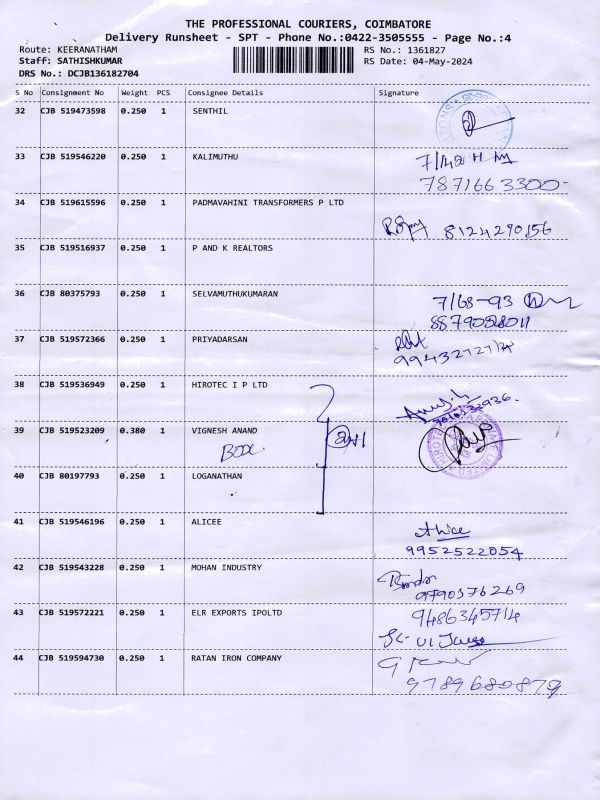 THE PROFESSIONAL COURIERS, COIMBATORE
Delivery Runsheet - SPT - Phone No.:0422-3505555 - Page No.:4
Route: KEERANATHAM
RS No.: 1361827
Staff: SATHISHKUMAR
RS Date: 04-May-2024
DRS No.: DCJB136182704
S No Consignment No Weight PCS Consignee Details Signature
32 CJB 519473598 0.250 1 SENTHIL
33 CJB 519546220 0.250 1 KALIMUTHU
7871663300-
34 CJB 519615596 0.250 1 PADMAVAHINI TRANSFORMERS P LTD
8124290156
35 CJB 519516937 0.250 1 P AND K REALTORS
36 CJB 80375793 0.250 1 SELVAMUTHUKUMARAN
7/68-93
37 CJB 519572366 0.250 1 PRIYADARSAN
38 CJB 519536949 0.250 1 HIROTEC I P LTD
39 CJB 519523209 0.380 1 VIGNESH ANAND
BOX.
40 CJB 80197793 0.250 1 LOGANATHAN
41 CJB 519546196 0.250 1 ALICEE
Alice
9952522054
42 CJB 519543228 0.250 1 MOHAN INDUSTRY
9790576269
43 CJB 519572221 0.250 1 ELR EXPORTS IPOLTD
9486345714
44 CJB 519594730 0.250 1 RATAN IRON COMPANY
9789680879